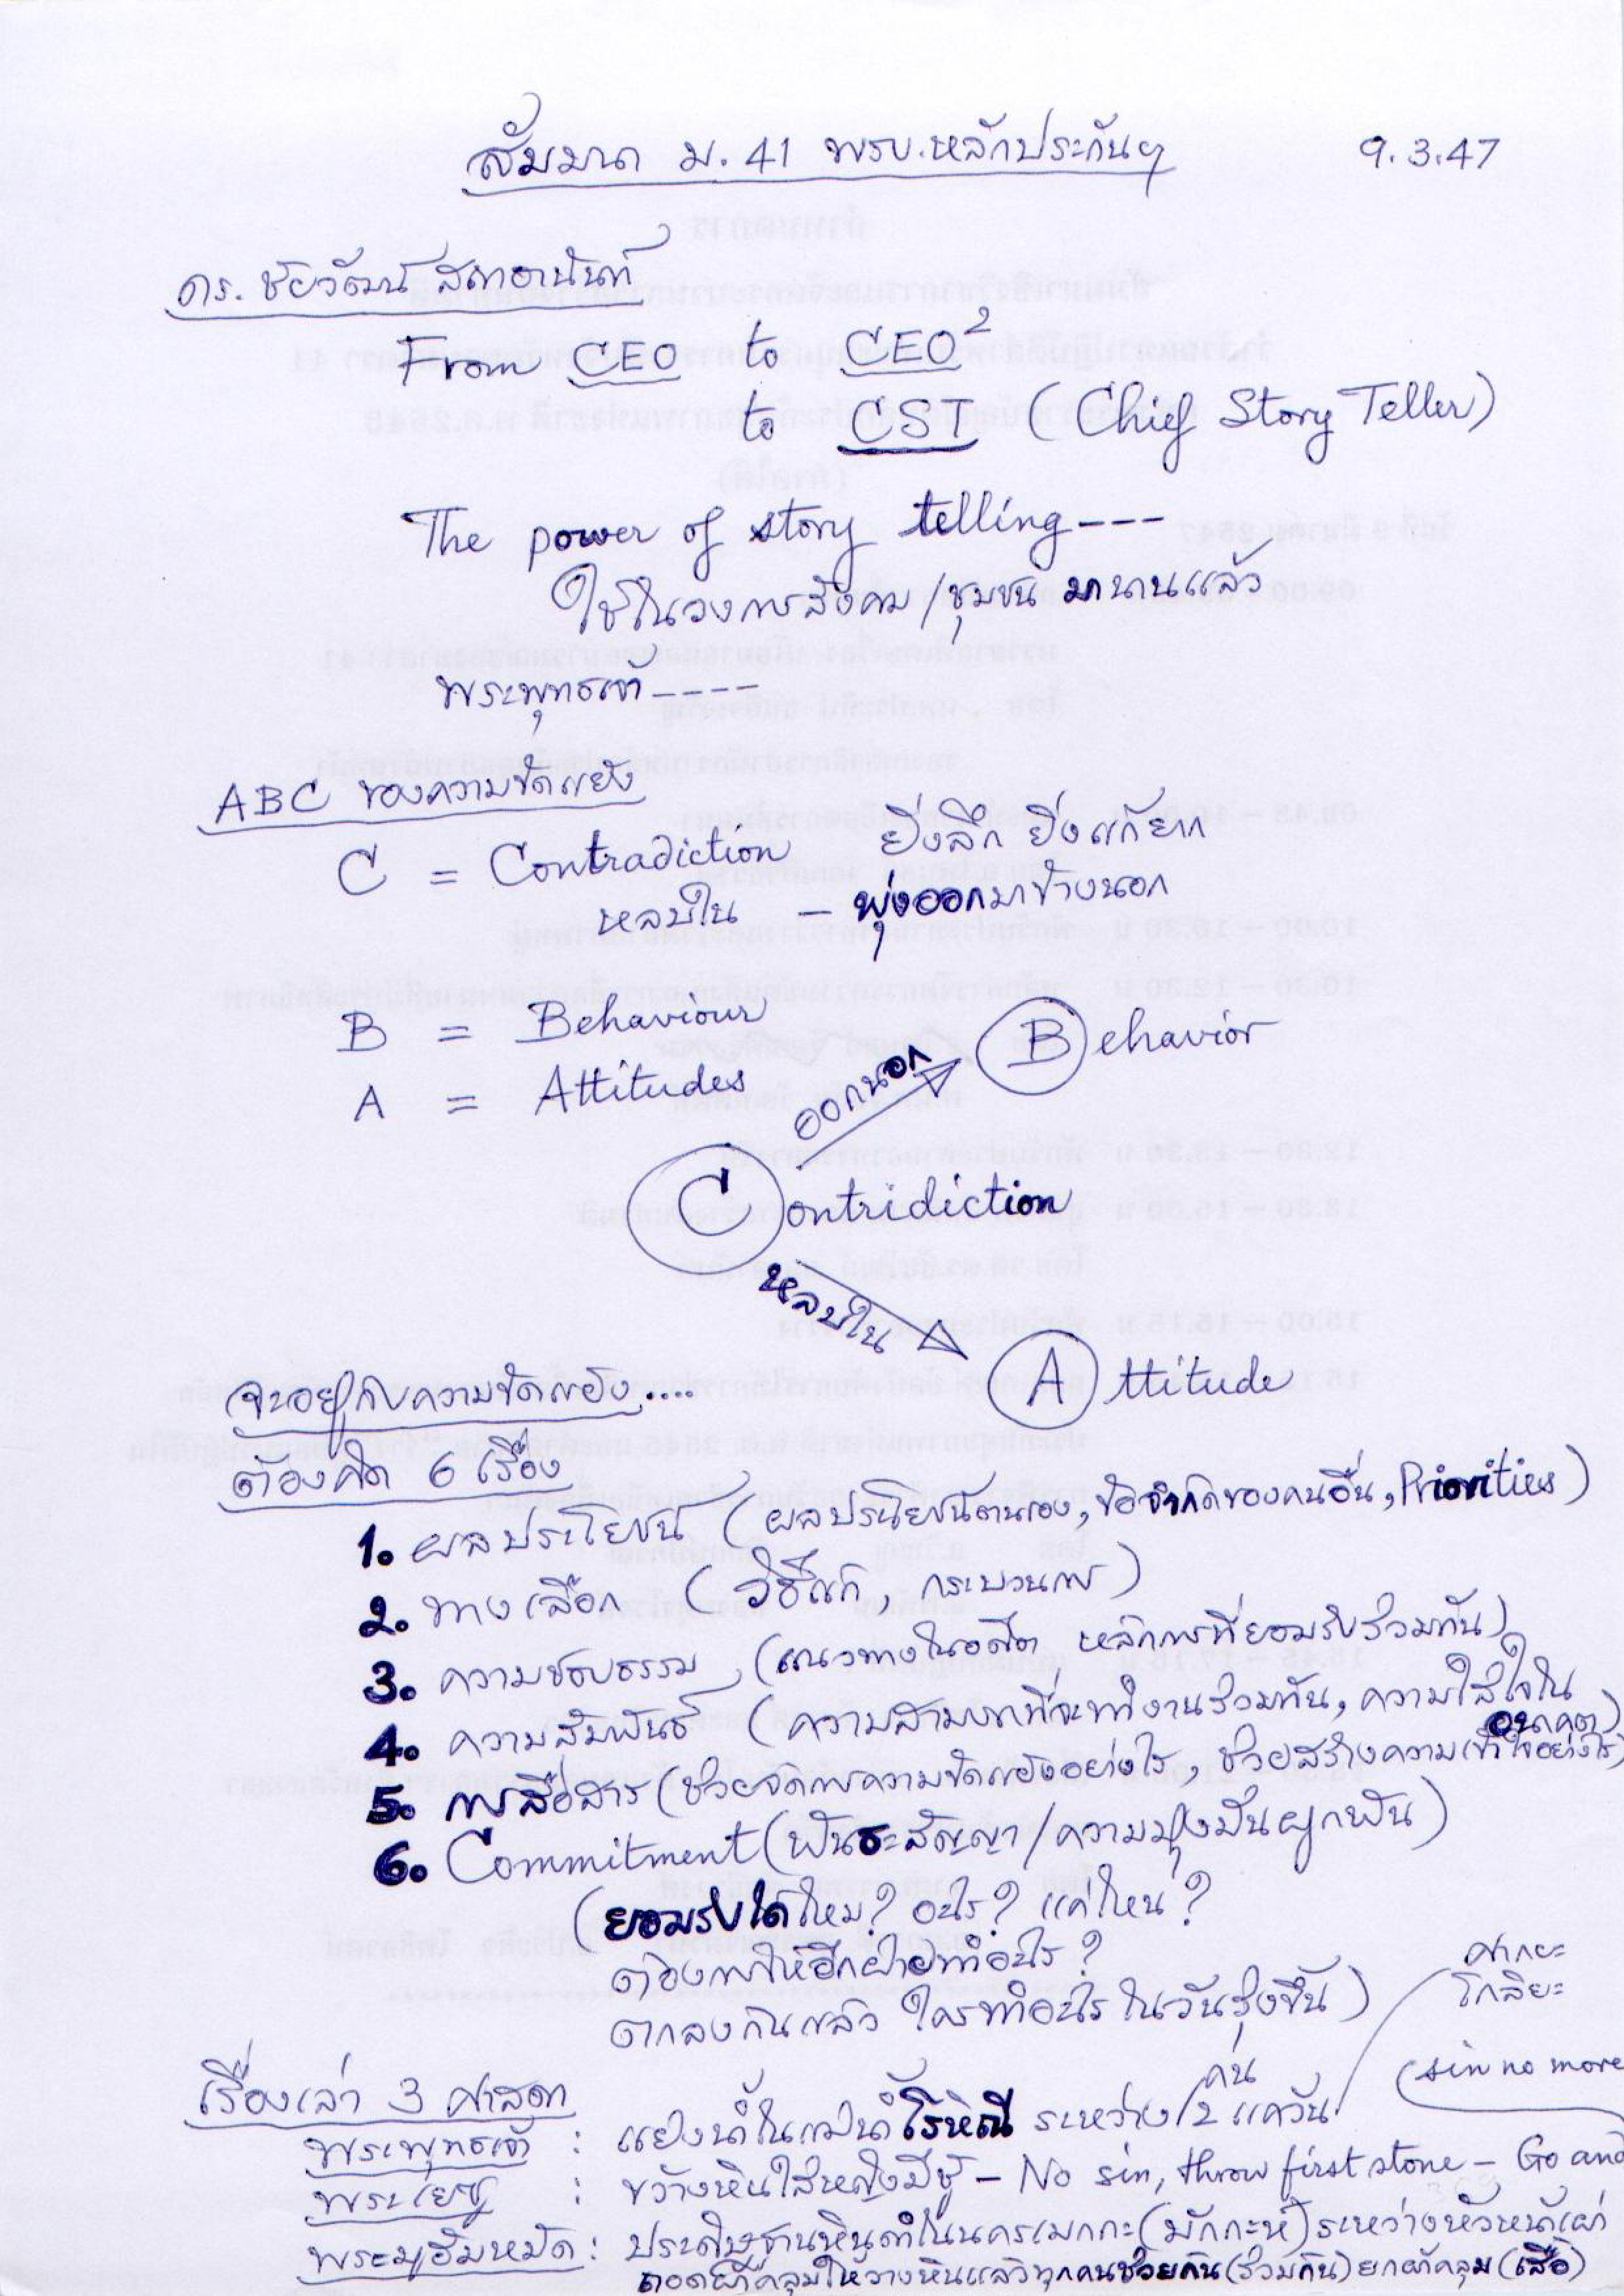 สัมมนา ม.41 พรบ.หลักประกันฯ 9.3.47
ดร.ชัยวัฒน์ สถาอานันท์
From CEO to CEO²
to CST (Chief Story Teller)
The power of story telling ---
ใช้ในวงการสังคม/ชุมชน มานานแล้ว
พระพุทธเจ้า ----
ABC ของความขัดแย้ง
C = Contradiction ยิ่งลึก ยิ่งแก้ยาก
หลบใน – พุ่งออกมาข้างนอก
B = Behaviour
A = Attitudes
ออกนอก Behavior
Contridiction
หลบใน
Attitude
จะอยู่กับความขัดแย้ง....
ต้องคิด 6 เรื่อง
1. ผลประโยชน์ (ผลประโยชน์ตนเอง, ข้อจำกัดของคนอื่น, Priorities)
2. ทางเลือก (วิธีแก้, กระบวนการ)
3. ความชอบธรรม, (แนวทางในอดีต หลักการที่ยอมรับร่วมกัน)
4. ความสัมพันธ์ (ความสามารถที่จะทำงานร่วมกัน, ความใส่ใจใน
อนาคต)
5. การสื่อสาร (ช่วยจัดการความขัดแย้งอย่างไร, ช่วยสร้างความเข้าใจอย่างไร)
6. Commitment (พันธะสัญญา/ความมุ่งมั่นผูกพัน)
(ยอมรับได้ไหม? อะไร? แค่ไหน?
ต้องการให้อีกฝ่ายทำอะไร?
ตกลงกันแล้ว ใครทำอะไร ในวันรุ่งขึ้น)
ศากยะ
โกลิยะ
เรื่องเล่า 3 ศาสดา
พระพุทธเจ้า : แย่งน้ำในแม่น้ำโรหิณี ระหว่าง 2 แคว้น
(sin no more
พระเยซู : ขว้างหินใส่หญิงมีชู้ – No sin, throw first stone – Go and
พระมูฮัมหมัด : ประดิษฐานหินดำในนครเมกกะ (มักกะห์) ระหว่างหัวหน้าเผ่า
ถอดผ้าคลุมให้วางหินแล้วทุกคนช่วยกัน (ร่วมกัน) ยกผ้าคลุม (เสื้อ)